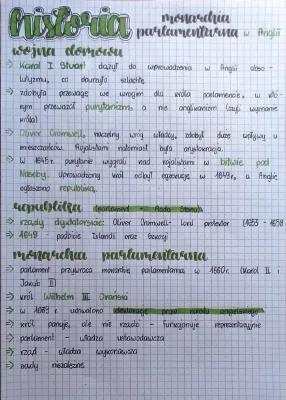 historia monarchia parlamentarna w Anglii
wojna domowa
⇒ Karol I Stuart dążył do wprowadzenia w Anglii abso-
lutyzmu, co oburzyło szlachtę
⇒ zdobyła przewagę we wrogim dla króla parlamencie, w któ-
rym przeważał purytanizm, a nie anglikanizm (czyli wyznanie
króla)
⇒ Oliver Cromwell, naczelny wróg władcy, zdobył duże wpływy u
mieszczanów. Rojalistami natomiast była arystokracja.
⇒ W 1645r. purytanie wygrali nad rojalistami w bitwie pod
Naseby. Uprowadzony król odbył egzekucję w 1649r, a Anglię
ogłoszono republiką.
republika (parlament - Rada Stanu)
⇒ rządy dyktatorskie: Oliver Cromwell - lord protektor (1653 - 1658
⇒ 1649 - podbicie Islandii oraz Szkocji
monarchia parlamentarna
⇒ parlament przywraca monarchię parlamentarną w 1660r. (Karol II i
Jakub II)
⇒ król Wilhelm III Orański
⇒ w 1689 r uchwalono deklarację praw narodu angielskiego
⇒ król panuje, ale nie rządzi - funkcjonuje reprezentacyjnie
⇒ parlament - władza ustawodawcza
⇒ rząd - władza wykonawcza
⇒ sądy niezależne